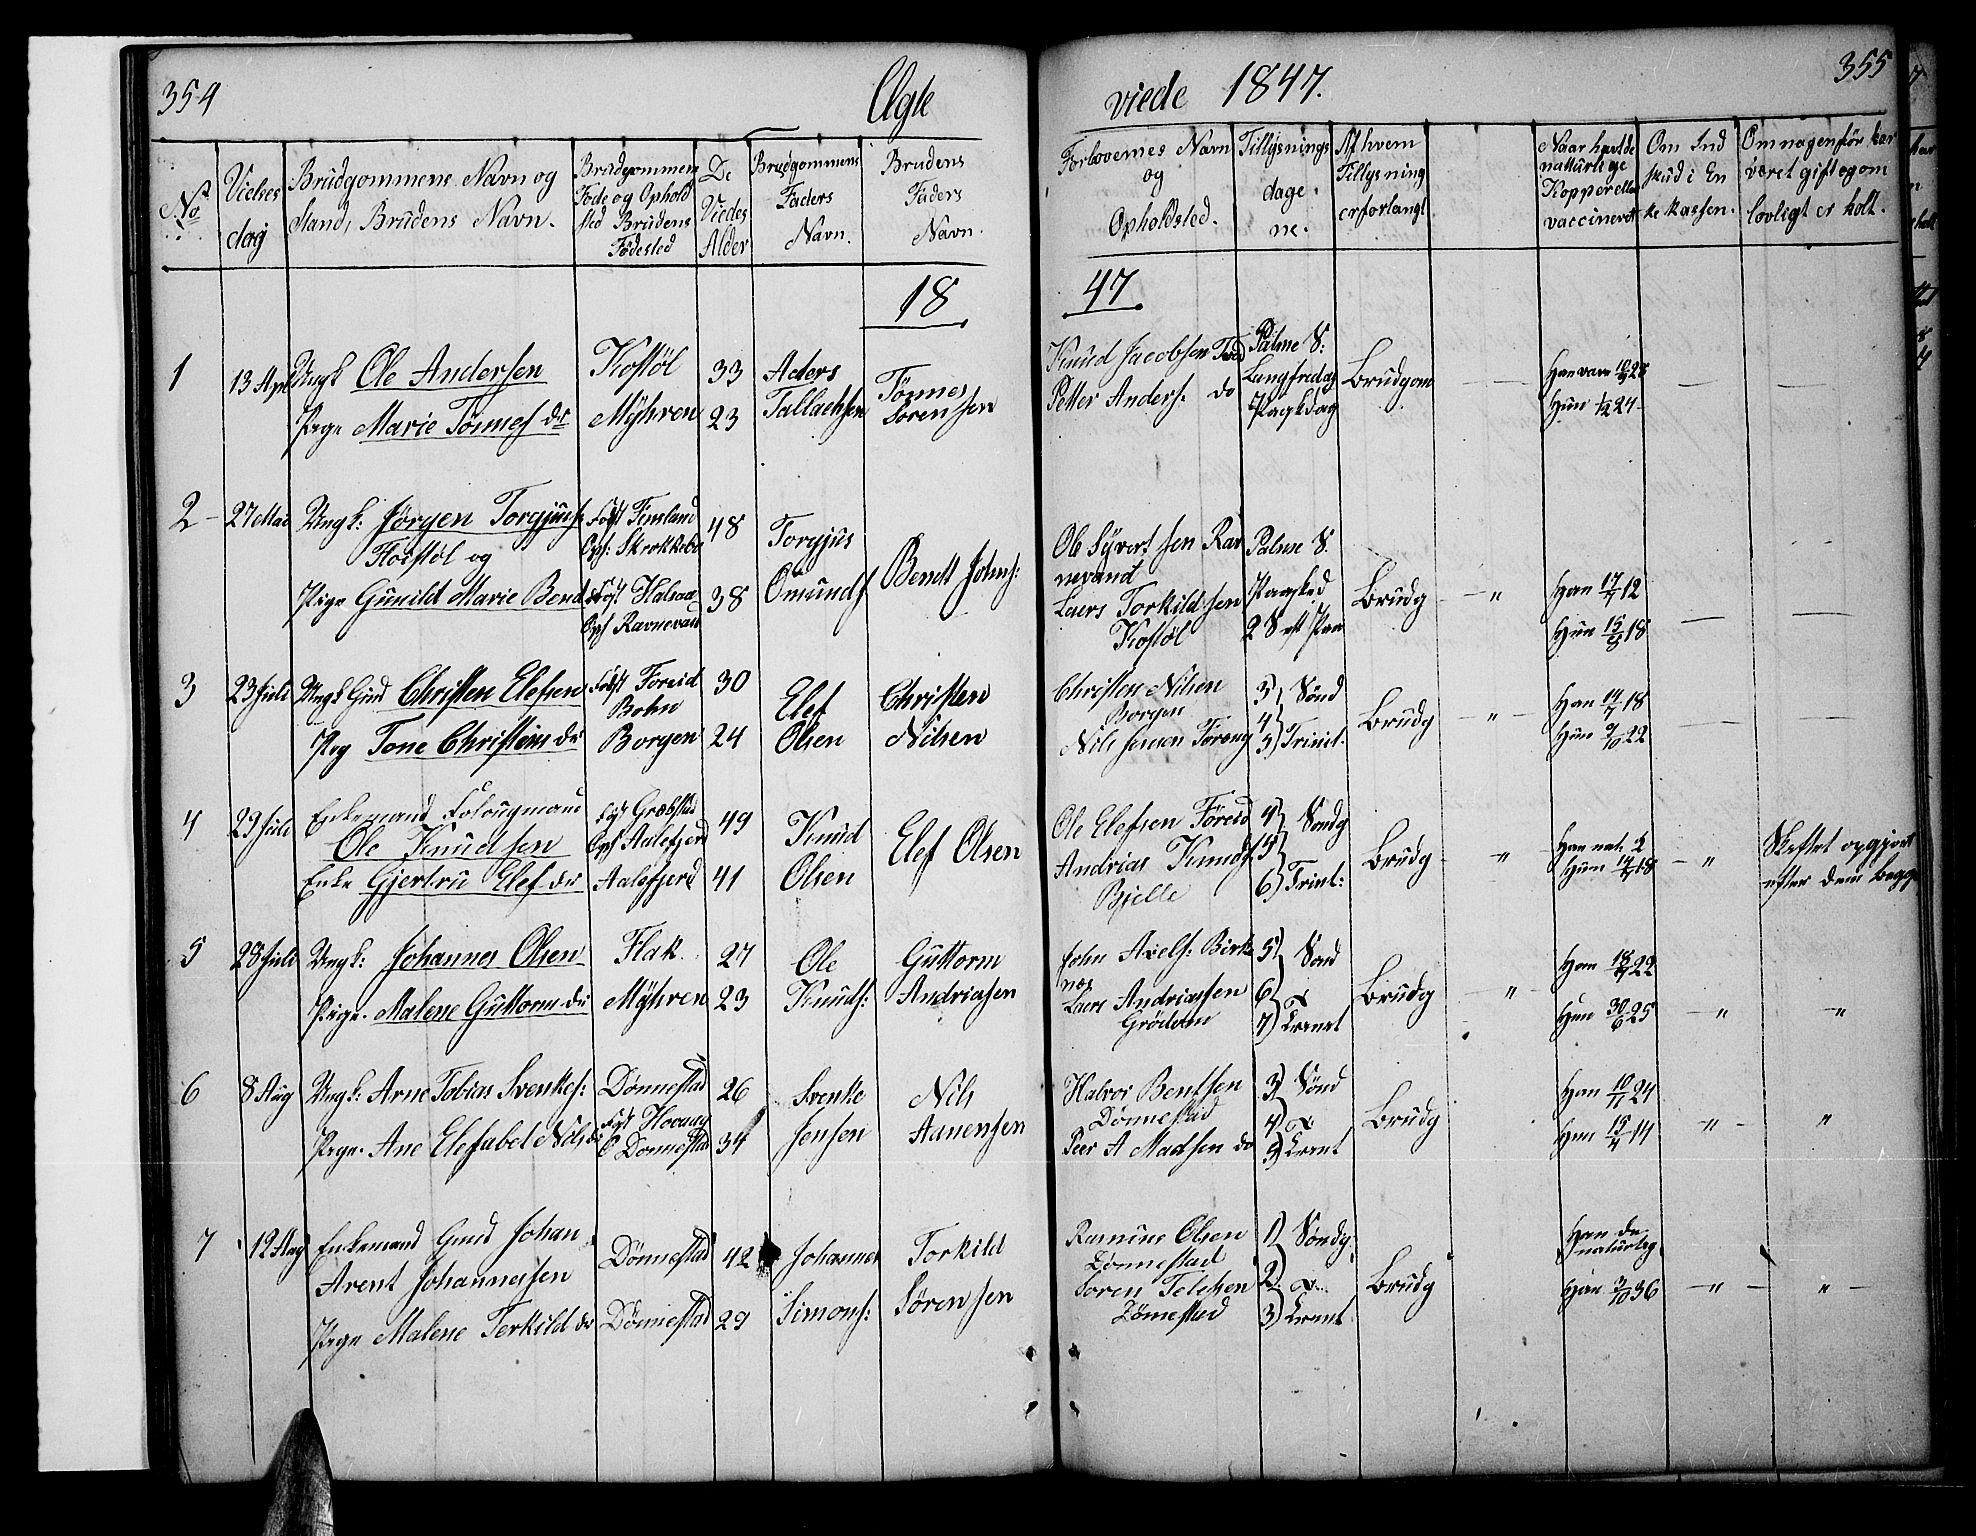 354
Ægte
viede 1847.
355
No
Vielses dag
Brudgommens Navn og Stand, Brudens Navn.
Brudgommens Føde og Ophold sted Brudens Fødested
De Viedes Alder
Brudgommens Faders Navn.
Brudens Faders Navn.
Forlovernes Navn og Opholdsted.
Tillysnings dage. ne.
Af hvem Tillysning er forlangt
Naar havt de naturlige Kopper eller vaccineret
Om Ind skud i En ke kassen.
Om nogen før har været gift og om lovligt er holt.
18
47
1
13 Apr
Ungk Ole Andersen
Pige Marie Tønnes dr
Kostøl
Myhren
33
23
Aders Tallachsen
Tønnes Sørensen
Knud Jacobsen
Petter Anders: do
Palme S:
Langfredag
Paaskdag
Brudgom
Han vacc 10/9 28
Hun 1/12 24
2
27 Mai
Ungk: Jørgen Torgjus
Flosstøl og
Pige Gunild Marie Bend
Føst Finsland
Oph: Skrekkebo
Føst Halsaa
Oph Ravnevan
48
38
Torgjus Omunds
Bendt Johns:
Ole Syvertsen Rav
nevand
Laers Torkildsen
Kostøl
Palme S.
2 S eft Paa
Brudg
Han 17/7 12
Hun 15/8 18
3
23 Juli
Ungk Gmd Christen Elefsen
Pig Tone Christens dr
Føst Foreid
Bohn
Borgen
30
24
Elef Olsen
Christen Nilsen
Christen Nilsen
Borgen
Nils Jensen
3) Sønd
4)
5) Trinit.
Brudg
Han 14/7 18
Hun 9/10 22
4
29 Juli
Enkemand
Ole Knudsen
Enke Gjertru Elef dr
Føst Græbstad
Oph Aalefjerd
Aalefjerd
49
41
Knud Olsen
Elef Olsen
Ole Elefsen Føreid
Andrias Knuds
Bjelle
4) Søndg
5)
6) Trint:
Brudg
Han nat:
Hun 14/7 18
Skeftet opgjort
efter dem begge
5
28 Juli
Ungk: Johannes Olsen
Pige. Malene Guttorms dr
Flak.
Myhren
27
23
Ole Knuds:
Guttorm Andriasen
John Axels: Birke
næs
Laers Andriassen
5) Sønd
6)
7) Trenet
Brudg
Han 18/9 22
Hun 30/6 25
6
8 Aug
Ungk: Arne Tobias Svenkes:
Pige. Ane Elesabet Nils dr
Dønnestad
Føst Hovaag
O Dønnestad
26
34
Svenke Jensen
Nils Aanensen
Halvor Bentsen
Dønnestad
Peer A Madsen do
3) Sønd
4)
5) Trent
Brudg
Han 10/11 24
Hun 15/7 14
7
12 Aug
Enkemand Gmd Johan
Arent Johannessen
Pige Malene Terkild dr
Dønnestad
Dønnestad
42
29
Johannes Simons:
Torkild Sørensen
Rasmus Olsen
Dønnestad
Soren Telefsen
Dønnestad
1) Søndg
2)
3) Trent
Brudg
Han de
naturleg
Hun 3/10 36